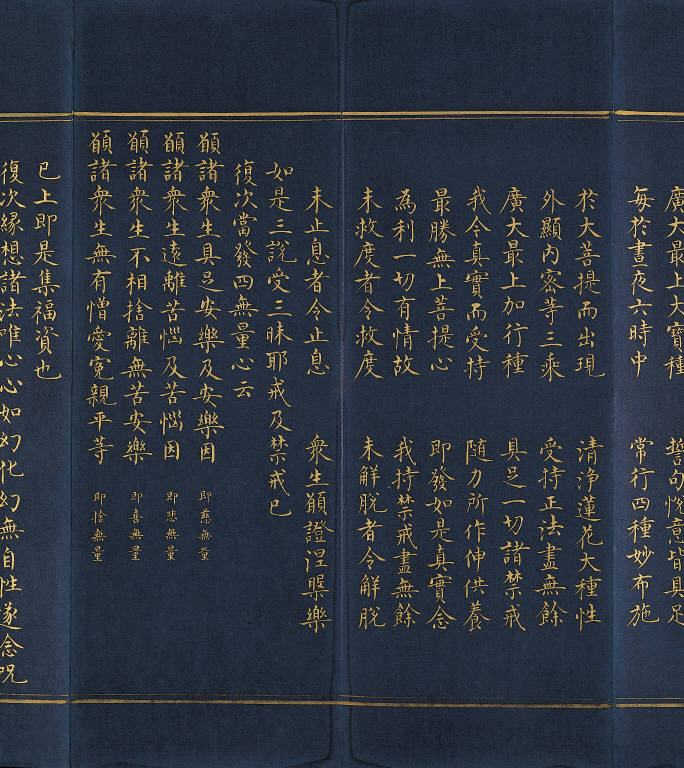 廣大最上大寶種 誓句悅意皆具足
每於晝夜六時中 常行四種妙布施
於大菩提而出現 清淨蓮花大種性
外顯內密等三乘 受持正法盡無餘
廣大最上加行種 具足一切諸禁戒
我今真實而受持 隨力所作伸供養
最勝無上菩提心 即發如是真實念
為利一切有情故 我持禁戒盡無餘
未救度者令救度 未解脫者令解脫
未止息者令止息 衆生願證涅槃樂
如是三說受三昧耶戒及禁戒已
復次當發四無量心云
願諸衆生具足安樂及安樂因 即慈無量
願諸衆生遠離苦惱及苦惱因 即悲無量
願諸衆生不相捨離無苦安樂 即喜無量
願諸衆生無有憎愛寃親平等 即捨無量
已上即是集福資也
復次緣想諸法唯心心如幻化幻無自性遂念呪